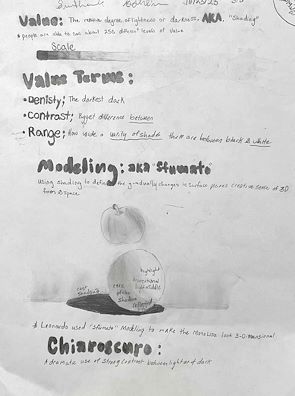 10/23/23
Value: The relative degree of lightness or darkness, AKA. "Shading"
* people are able to see about 250 different levels of value
Scale
Value Terms:
• Denisty; The darkest dark
• Contrast; difference between
• Range; How wide a varity of shades there are between black & white
Modeling: aka "Sfumato"
Using shading to define the gradually changes in surface planes creative sense of 3D
form & space
highlight
cast
shadow
core
of the
Shadow
reflected
* Leonardo used "sfumato" Modeling to make the MonaLisa look 3-Dimensional
Chiaroscuro:
A dramatic use of strong contrast between light & dark